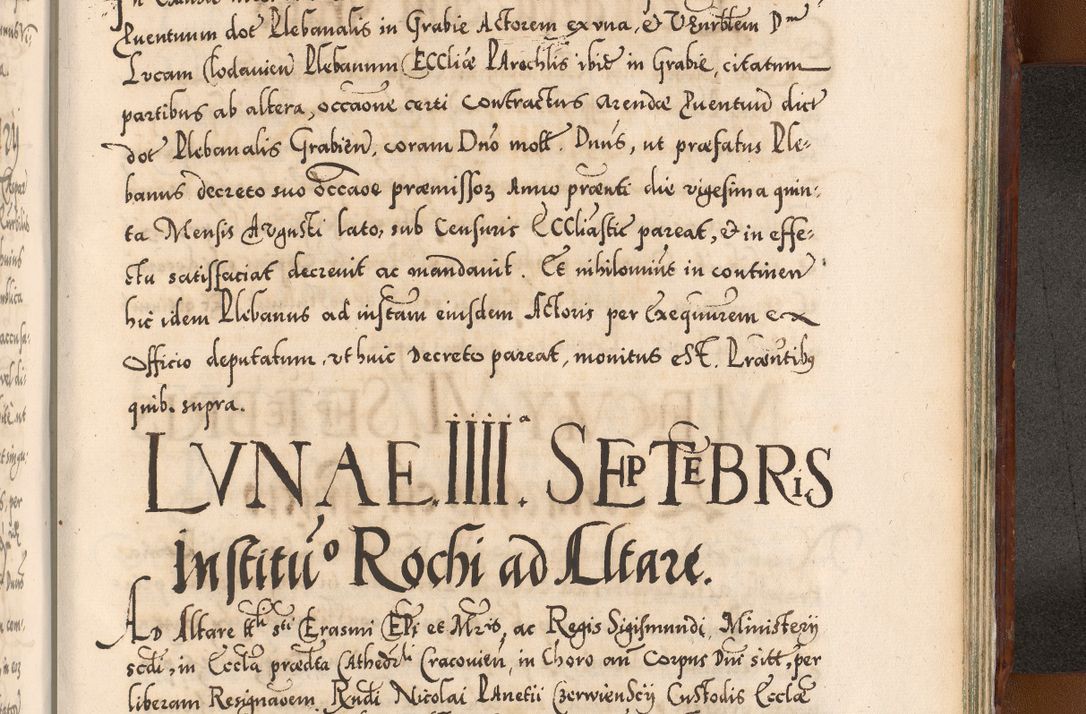 Puentuum dot Plebanalis in Grabie Actorem ex vna, et Venrblem Dm
Lvcam Clodavien Plebanum Eccliæ PArochlis ibid in Grabie, citatum
partibus ab altera, occaone certi contractus arendæ Puentuu dict
dot Plebanalis Grabien, coram Dno moll. Duus, ut præfatus Ple-
banus decreto suo occaoe præmissoz Anno præsnti die vigesima quin-
ta Mensis Avgusti lato, sub Censuris Eccliastic pareat, & in effe-
ctu satisfaciat decrevit ac mandavit. Et nihilominus in continen
hic idem Plebanus ad instam eiusdem Actoris per Exequurem ex
Officio deputatum, vt huic Decreto pareat, monitus est. Præsntibq
quib. supra.
LVNAE. IIIIa. SEPTEBRIS
Institūo Rochi ad Altare.
AD Altare ttli sti Erasmi Epi et Mris, ac Regis Sigismundi, Ministerij
scdi, in Eccla prædta Cathedrli Cracovien, in Choro an Corpus Dni sitt, per
liberam Resignaoem Rndi Nicolai PAnetii Czerwienscij Custodis Ecclæ